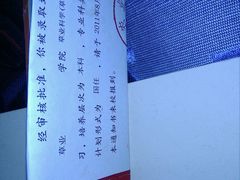 经审核批准，你被录取
草业 学院 草业科学(草
习，培养层次为 本科，专业科
计划形式为 国任，请于 2011年8
本通知书来校报到。